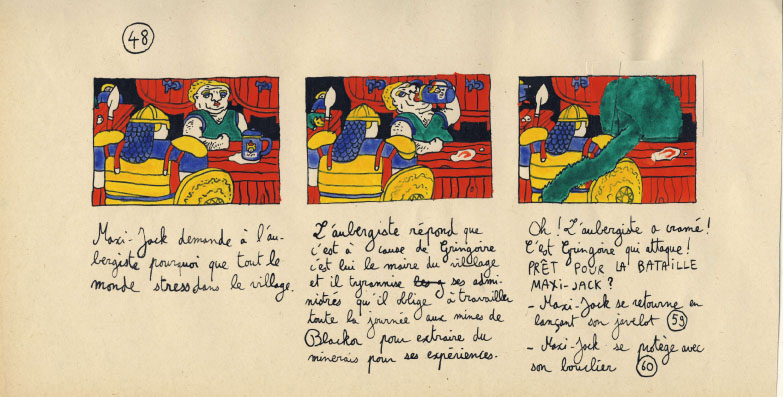 48
Maxi-Jack demande à l'au-
bergiste pourquoi que tout le
monde stress dans le village.
L'aubergiste répond que
c'est à cause de Gringoire
c'est lui le maire du village
et il tyrannise les a ses admi-
nistrés qu'il oblige à travailler
toute la journée aux mines de
Blackor pour extraire du
minerais pour ses expériences.
Oh ! L'aubergiste a cramé !
C'est Gringoire qui attaque !
PRÊT POUR LA BATAILLE
MAXI-JACK ?
- Maxi-Jack se retourne en
lançant son javelot 59
- Maxi-Jack se protège avec
son bouclier 60